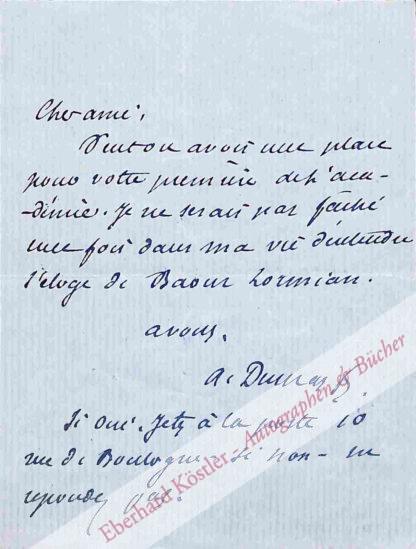 Cher ami,
Peut on avoir une place
pour votre première de l'aca-
-démie. Je ne serais pas fâché
une fois dans ma vie d'entendre
l'éloge de Baour Lormian.
a vous.
A. Dumas
Si oui. Jetez à la poste 10
rue de Boulogne - Si non - ne
repondez pas.
Eberhard Köstler - Autographen & Bücher